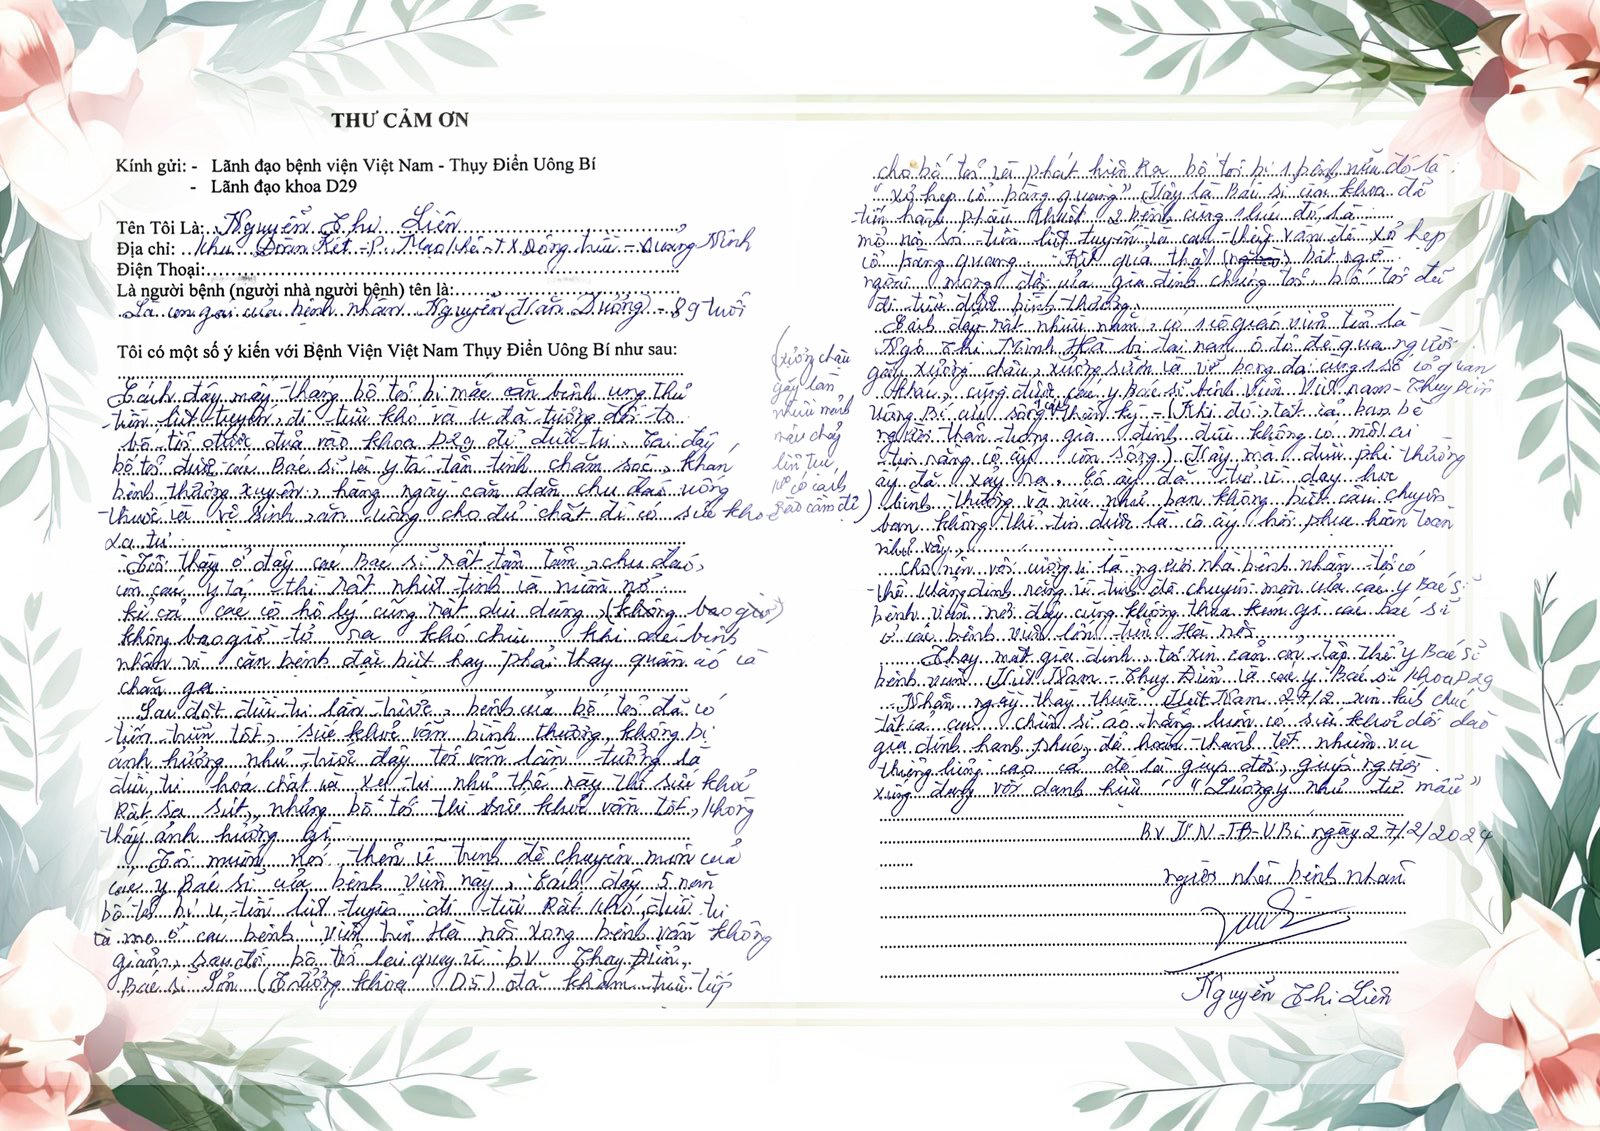 THƯ CẢM ƠN
Kính gửi: - Lãnh đạo bệnh viện Việt Nam - Thụy Điển Uông Bí
- Lãnh đạo khoa D29
Tên Tôi Là: Nguyễn Thị Liên
Địa chỉ: Khu Đoàn Kết - P. Mạo Khê - TX Đông Triều - Quảng Ninh
Điện Thoại:
Là người bệnh (người nhà người bệnh) tên là:
Là con gái của bệnh nhân Nguyễn Văn Dưỡng - 89 tuổi
Tôi có một số ý kiến với Bệnh Viện Việt Nam Thụy Điển Uông Bí như sau:
Cách đây mấy tháng bố tôi bị mắc căn bệnh ung thư
tiền liệt tuyến, đi tiểu khó và u đã tương đối to
bố tôi được đưa vào khoa D29 để điều trị. Tại đây
bố tôi được các Bác sĩ và y tá tận tình chăm sóc, khám
bệnh thường xuyên, hàng ngày căn dặn chu đáo uống
thuốc và vệ sinh, ăn uống cho đủ chất để có sức khỏe
xạ trị
Tôi thấy ở đây các Bác sĩ rất tận tâm, chu đáo,
còn các y tá thì rất nhiệt tình và niềm nở
kể cả các cô hộ lý cũng rất dịu dàng, (không bao giờ)
không bao giờ tỏ ra khó chịu khi để bệnh
nhân vì căn bệnh đặc biệt hay phải thay quần áo và
chăn ga
Sau đợt điều trị lần trước, bệnh của bố tôi đã có
tiến triển tốt, sức khỏe vẫn bình thường, không bị
ảnh hưởng như trước đây tôi vẫn lầm tưởng là
điều trị hóa chất và xạ trị như thế này thì sức khỏe
Rất sa sút, nhưng bố tôi thì sức khỏe vẫn tốt, không
thấy ảnh hưởng gì
Tôi muốn nói thêm về trình độ chuyên môn của
các y Bác sĩ của bệnh viện này, Cách đây 5 năm
bố tôi bị u tiền liệt tuyến đi tiểu Rất khó, điều trị
và mổ ở các bệnh viện trên Hà nội xong bệnh vẫn không
giảm, sau đó bố tôi lại quay về b.v Thụy Điển,
Bác sĩ Sơn (Trưởng khoa D5) đã khám trực tiếp
cho bố tôi và phát hiện Ra bố tôi bị 1 bệnh nữa đó là
"xơ hẹp cổ bàng quang" Vậy là Bác sĩ của khoa đã
tiến hành phẫu thuật 2 bệnh cùng 1 lúc đó là
mổ nội soi tiền liệt tuyến và can thiệp vấn đề xơ hẹp
cổ bàng quang. Kết quả thật bất ngờ
ngoài mong đợi của gia đình chúng tôi, bố tôi đã
đi tiểu được bình thường.
Cách đây rất nhiều năm, có 1 cô giáo viên tên là
Ngô Thị Minh Hà bị tai nạn ô tô đè qua người
gãy xương chậu, xương sườn và vỡ bọng đái cùng 1 số cơ quan
khác, cũng được các y Bác sĩ bệnh viện Việt nam - Thụy Điển
Uông Bí cứu sống thần kỳ - (Khi đó, tất cả bạn bè
người thân trong gia đình đều không có một ai
tin rằng cô ấy còn sống) Vậy mà điều phi thường
ấy đã xảy ra. Cô ấy đã trở về dạy học
(xương chậu
gãy làm
nhiều mảnh
máu chảy
liên tục,
ko có cách
nào cầm để)
bình thường và nếu như bạn không biết câu chuyện
bạn không thể tin được là cô ấy hồi phục hoàn toàn
như vậy,
Cho nên với cương vị là người nhà bệnh nhân tôi có
thể khẳng định rằng về trình độ chuyên môn của các y Bác sĩ
bệnh viện nơi đây cũng không thua kém gì các bác sĩ
ở các bệnh viện lớn trên Hà nội
Thay mặt gia đình, tôi xin cảm ơn tập thể y Bác sĩ
bệnh viện Việt Nam - Thụy Điển và các y Bác sĩ khoa D29
Nhân ngày thầy thuốc Việt Nam 27/2 xin kính chúc
tất cả các chiến sĩ áo trắng luôn có sức khỏe dồi dào
gia đình hạnh phúc, để hoàn thành tốt nhiệm vụ
thiêng liêng cao cả đó là giúp đời, giúp người
xứng đáng với danh hiệu "Lương y như từ mẫu"
B.V. V.N - T.Đ - U.Bí ngày 27/2/2024
người nhà bệnh nhân
Nguyễn Thị Liên